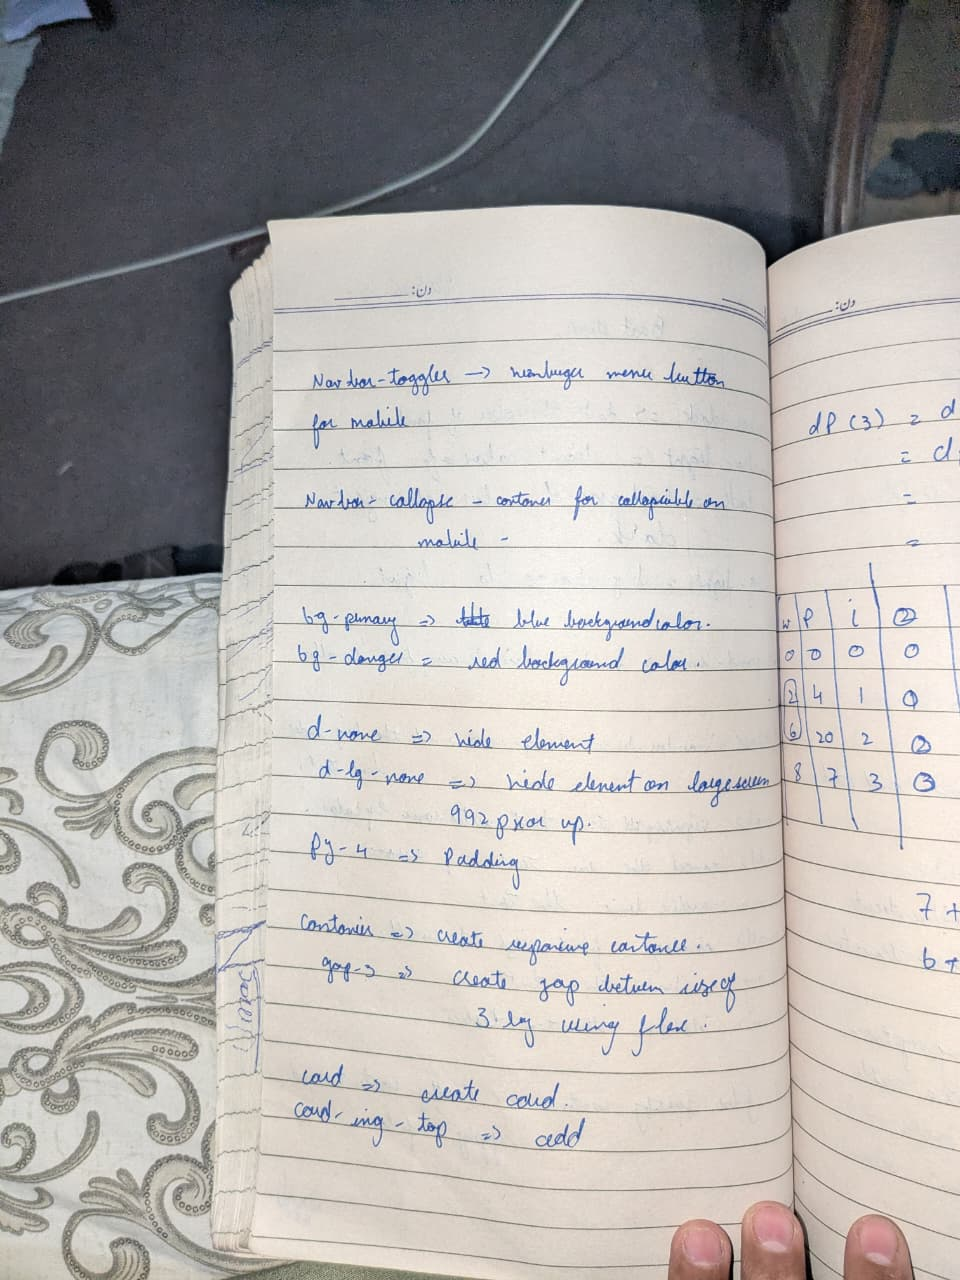 دن:
Navbar-toggler → hamburger menu button
for mobile
Navbar-collapse - container for collapsible on
mobile -
bg-primary => blue background color.
bg-danger = red background color.
d-none => hide element
d-lg-none => hide element on large screen
992 px or up.
Py-4 => Padding
container => create responsive container.
gap-3 => create gap between size of
3 by using flex.
card => create card.
card-img-top => add
دن:
dP(3) = d
= d
=
=
w P i 0
0 0 0 0
2 4 1 0
6 20 2 2
8 7 3 3
7 +
6 +